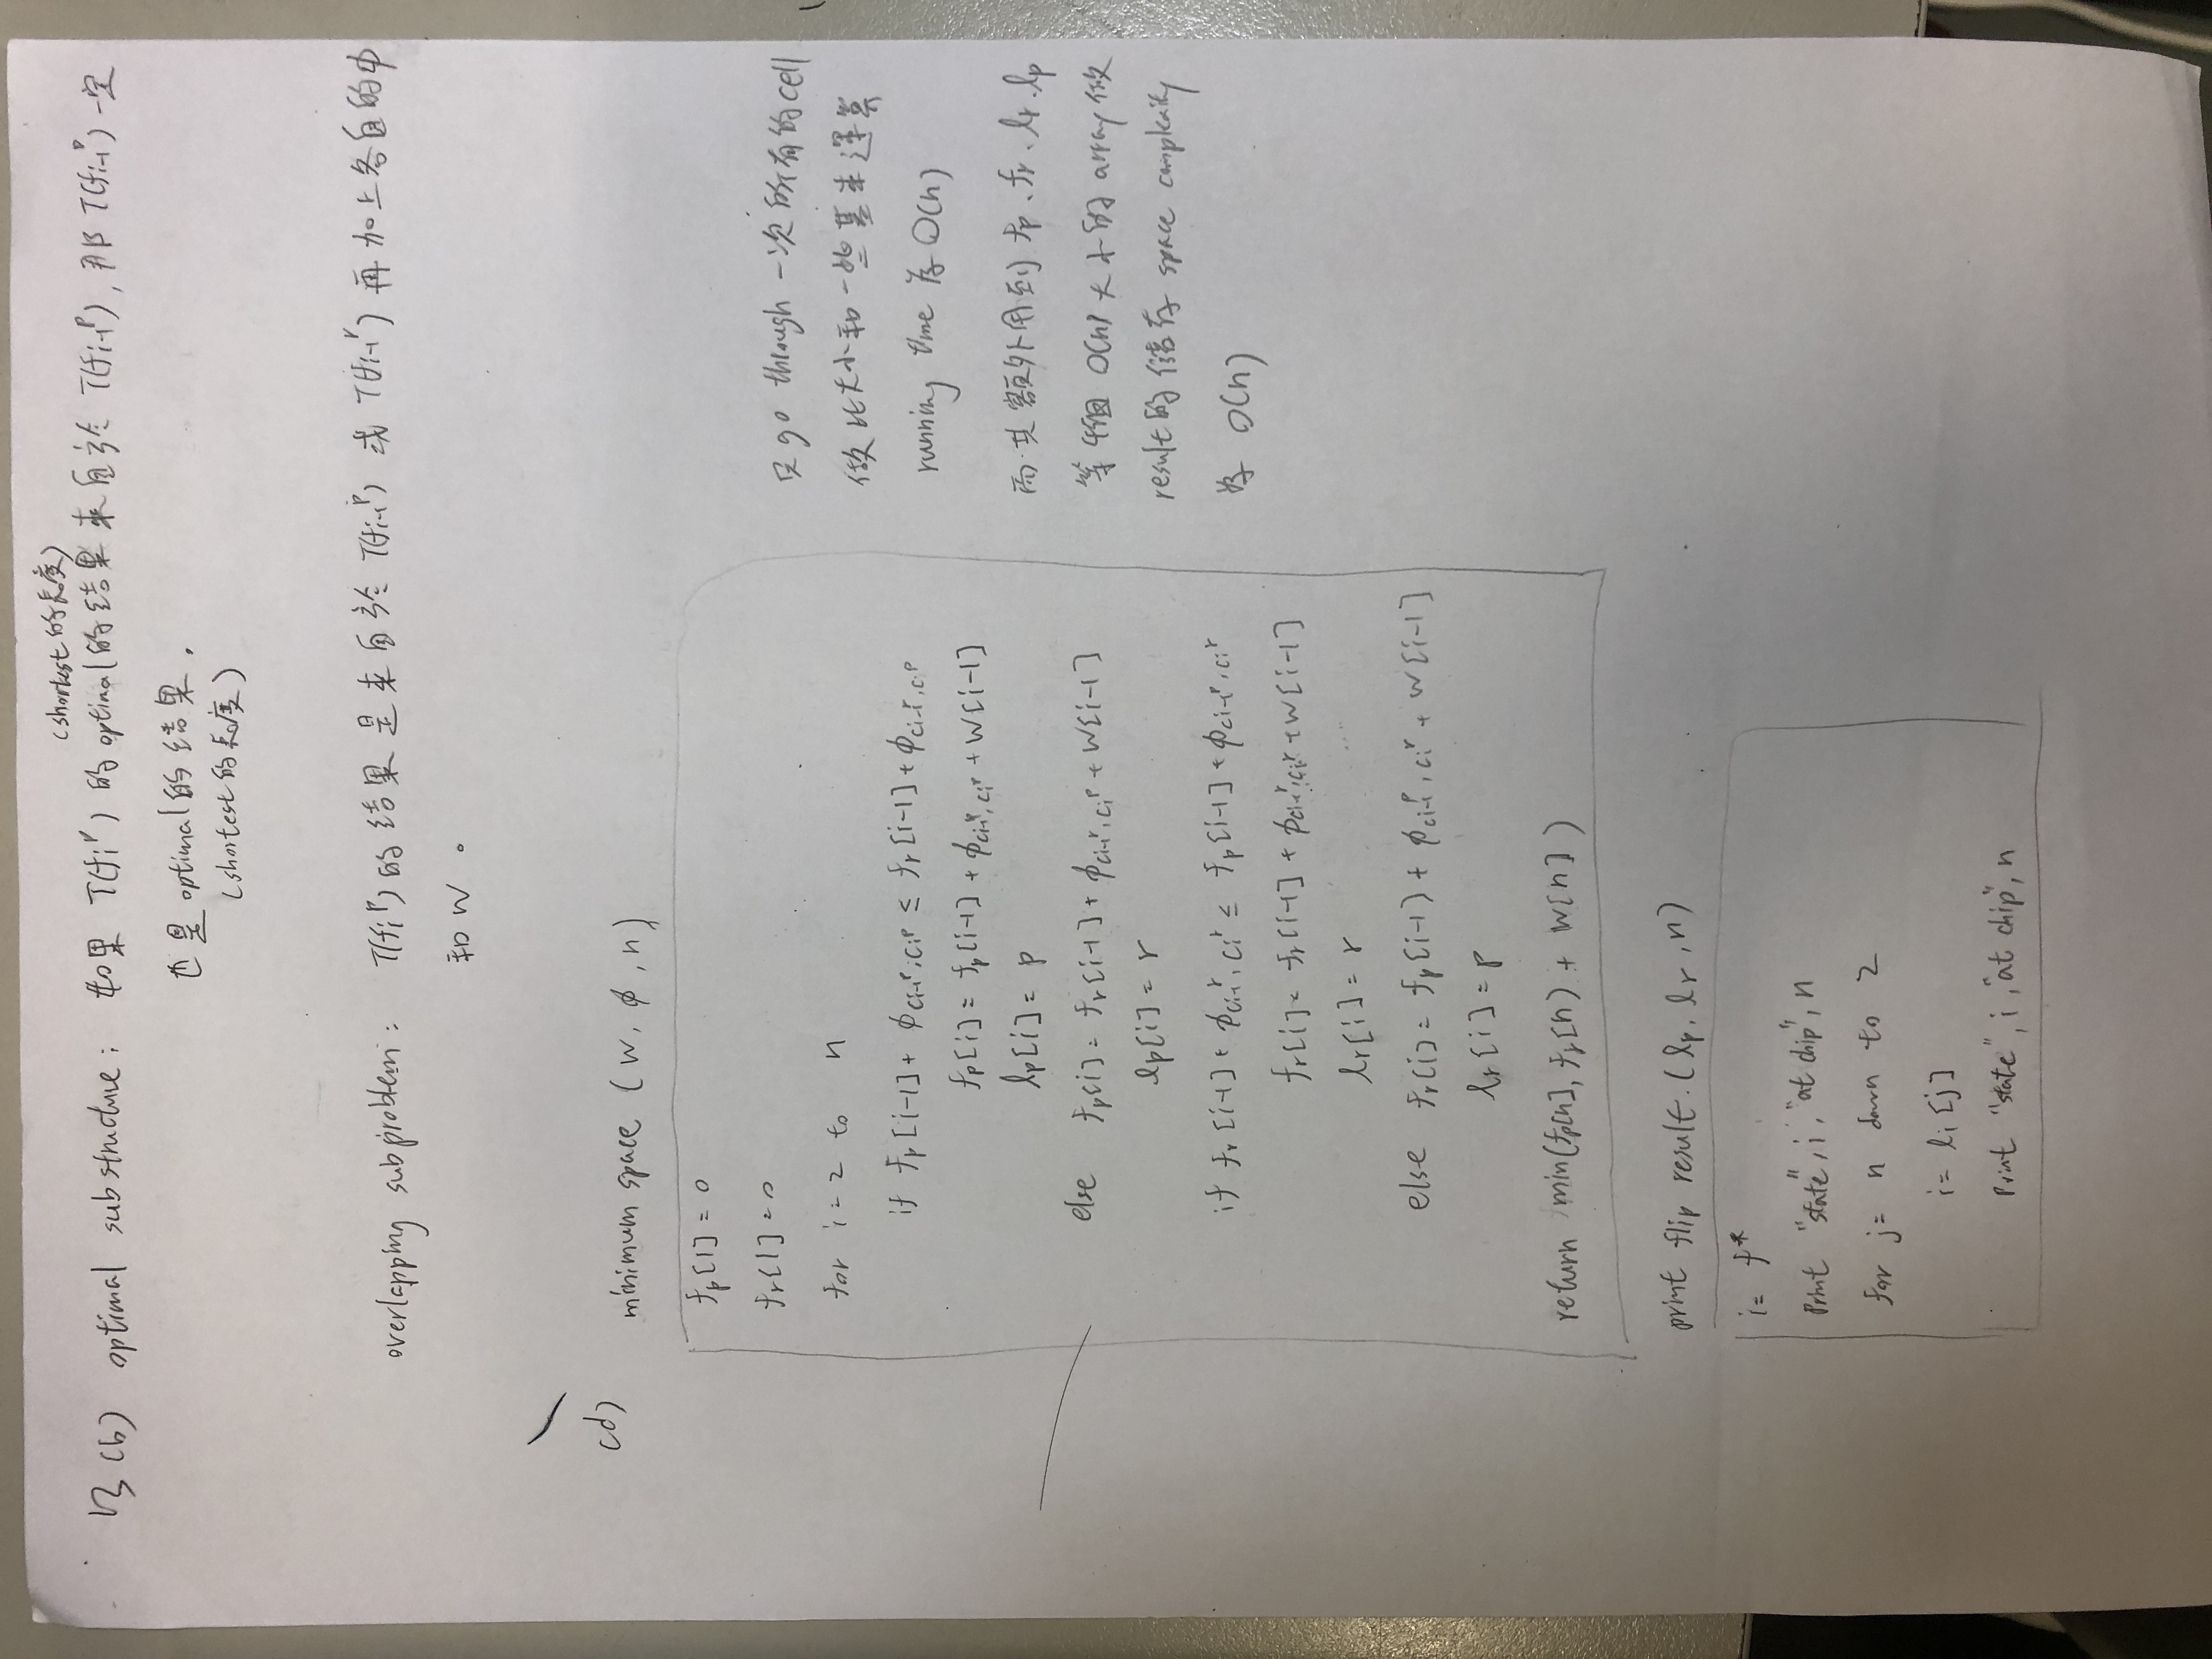 (shortest的長度)
13 (b) optimal substructure: 如果 T(f_i^p) 的 optimal的結果來自於 T(f_{i-1}^p), 那 T(f_{i-1}^p) 一定
也是 optimal的結果.
(shortest的長度)
overlapping subproblem: T(f_i^p) 的結果是來自於 T(f_{i-1}^p) 或 T(f_{i-1}^r) 再加上各自的φ
和 W 。
(d)
minimum space (W, φ, n)
f_p[1] = 0
f_r[1] = 0
for i = 2 to n
if f_p[i-1] + φ_{c_{i-1}^p, c_i^p} ≤ f_r[i-1] + φ_{c_{i-1}^r, c_i^p}
f_p[i] = f_p[i-1] + φ_{c_{i-1}^p, c_i^p} + W[i-1]
l_p[i] = p
else f_p[i] = f_r[i-1] + φ_{c_{i-1}^r, c_i^p} + W[i-1]
l_p[i] = r
if f_r[i-1] + φ_{c_{i-1}^r, c_i^r} ≤ f_p[i-1] + φ_{c_{i-1}^p, c_i^r}
f_r[i] = f_r[i-1] + φ_{c_{i-1}^r, c_i^r} + W[i-1]
l_r[i] = r
else f_r[i] = f_p[i-1) + φ_{c_{i-1}^p, c_i^r} + W[i-1]
l_r[i] = p
return min(f_p[n], f_r[n) + W[n])
只 go through 一次所有的cell
做比大小和一些基本運算
running time 為 O(n)
而其額外用到 f_p、f_r、l_r、l_p
等4個 O(n) 大小的 array 做
result的儲存 space complexity
為 O(n)
print flip result. (l_p, l_r, n)
i = f*
Print "state", i, "at chip", n
for j = n down to 2
i = l_i [j]
Print "state", i, "at chip", n